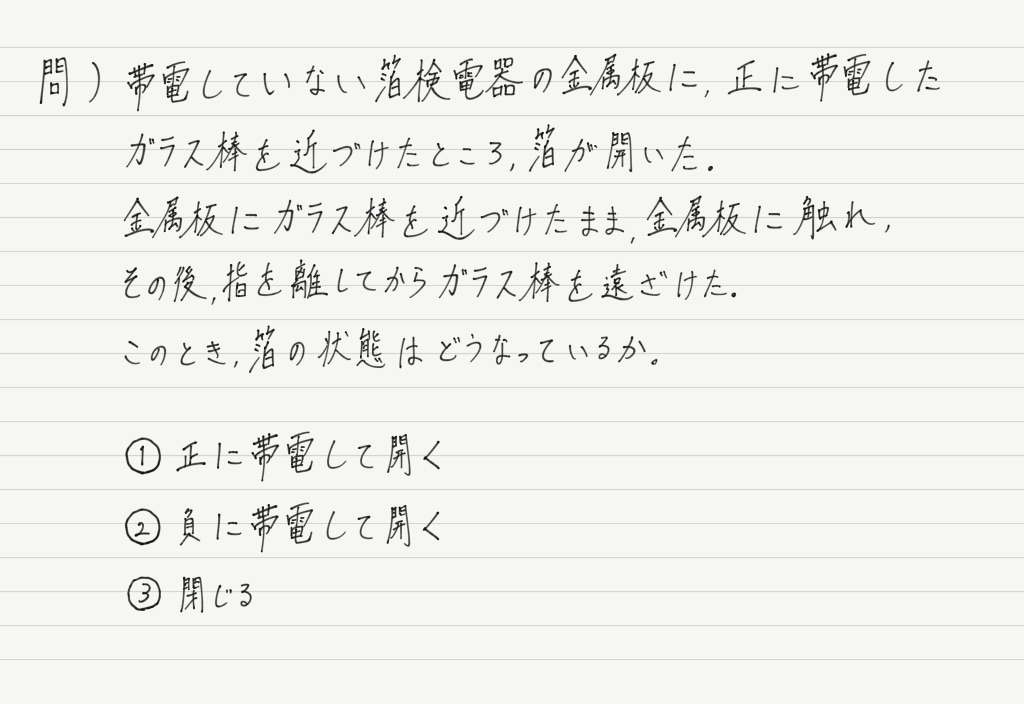 問）帯電していない箔検電器の金属板に，正に帯電した
ガラス棒を近づけたところ，箔が開いた．
金属板にガラス棒を近づけたまま，金属板に触れ，
その後，指を離してからガラス棒を遠ざけた．
このとき，箔の状態はどうなっているか。
① 正に帯電して開く
② 負に帯電して開く
③ 閉じる